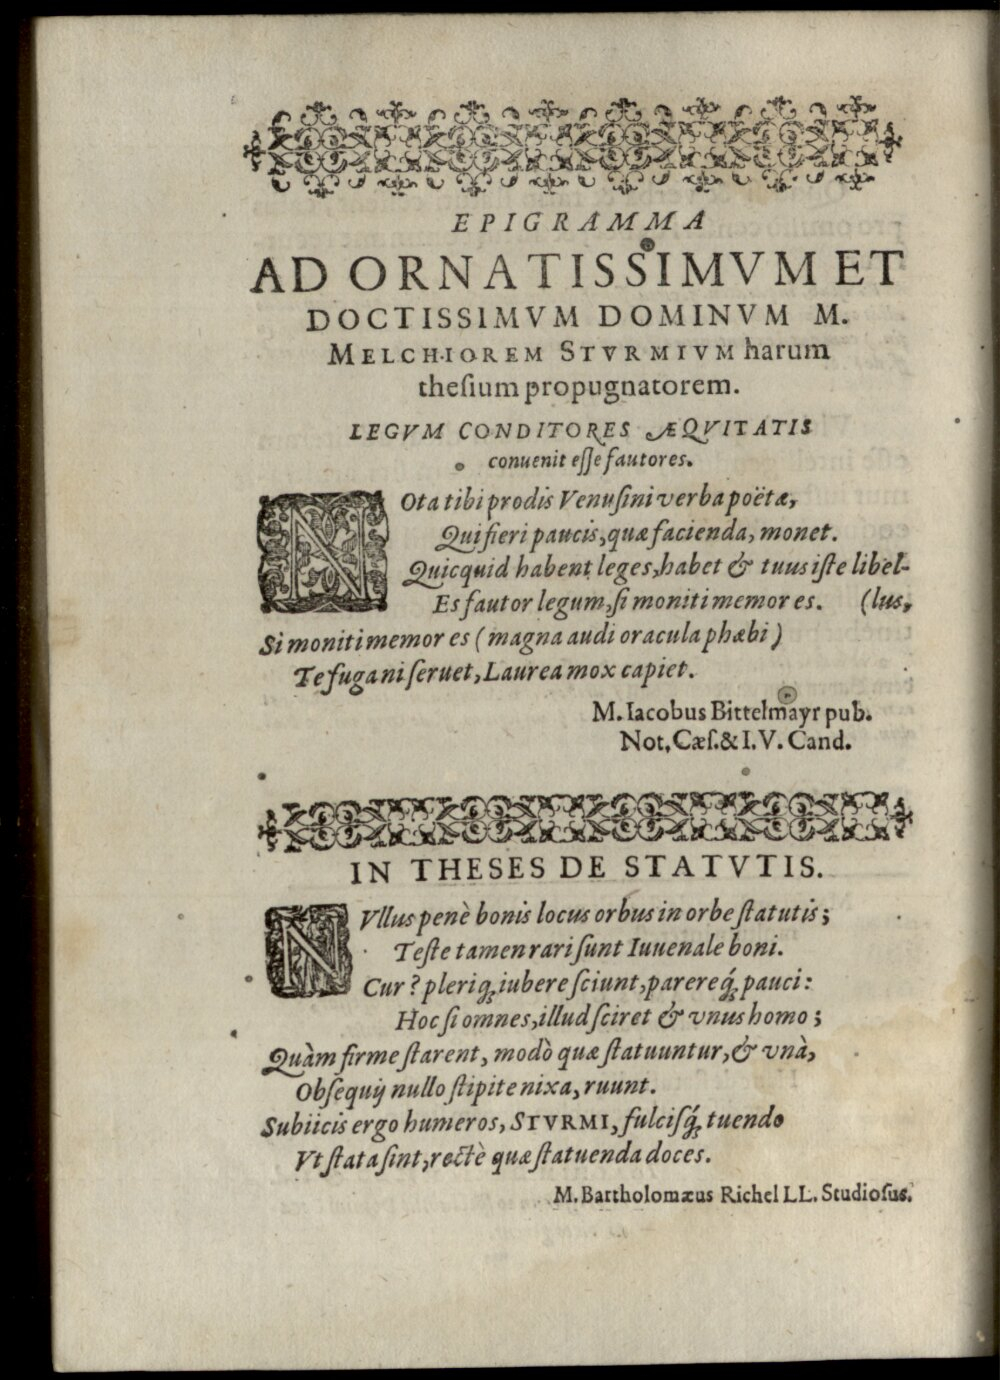 EPIGRAMMA
AD ORNATISSIMVM ET
DOCTISSIMVM DOMINVM M.
MELCHIOREM STVRMIVM harum
theſium propugnatorem.
LEGVM CONDITORES ÆQVITATIS
convenit eſſe fautores.
NOta tibi prodis Venuſini verba poëtæ,
Qui fieri paucis, quæ facienda, monet.
Quicquid habent leges, habet & tuus iſte libel-
Es fautor legum, ſi moniti memor es. (lus,
Si moniti memor es (magna audi oracula phæbi)
Te fugani ſeruet, Laurea mox capiet.
M. Iacobus Bittelmayr pub.
Not. Cæſ. & I. V. Cand.
IN THESES DE STATVTIS.
NVllus penè bonis locus orbus in orbe ſtatutis;
Teſte tamen rari ſunt Iuuenale boni.
Cur? pleriq́ꝫ iubere ſciunt, parereq́ꝫ pauci:
Hoc ſi omnes, illud ſciret & vnus homo;
Quàm firme ſtarent, modò quæ ſtatuuntur, & vnà,
Obſequij nullo ſtipite nixa, ruunt.
Subiicis ergo humeros, STVRMI, fulciſq́ꝫ tuendo
Vt ſtata ſint, rectè quæ ſtatuenda doces.
M. Bartholomæus Richel LL. Studioſus.